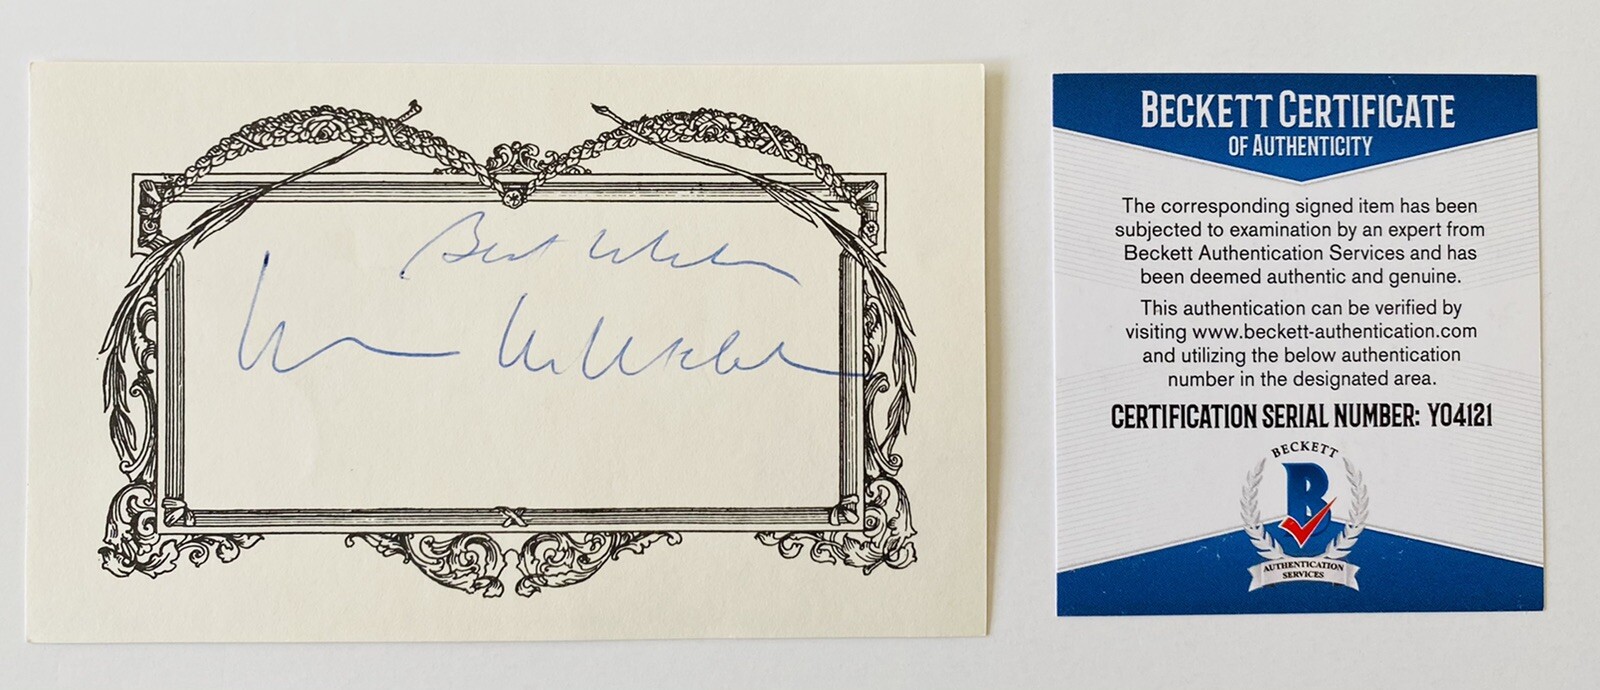 Best Wishes
BECKETT CERTIFICATE
OF AUTHENTICITY
The corresponding signed item has been
subjected to examination by an expert from
Beckett Authentication Services and has
been deemed authentic and genuine.
This authentication can be verified by
visiting www.beckett-authentication.com
and utilizing the below authentication
number in the designated area.
CERTIFICATION SERIAL NUMBER: Y04121
BECKETT
B
AUTHENTICATION
SERVICES